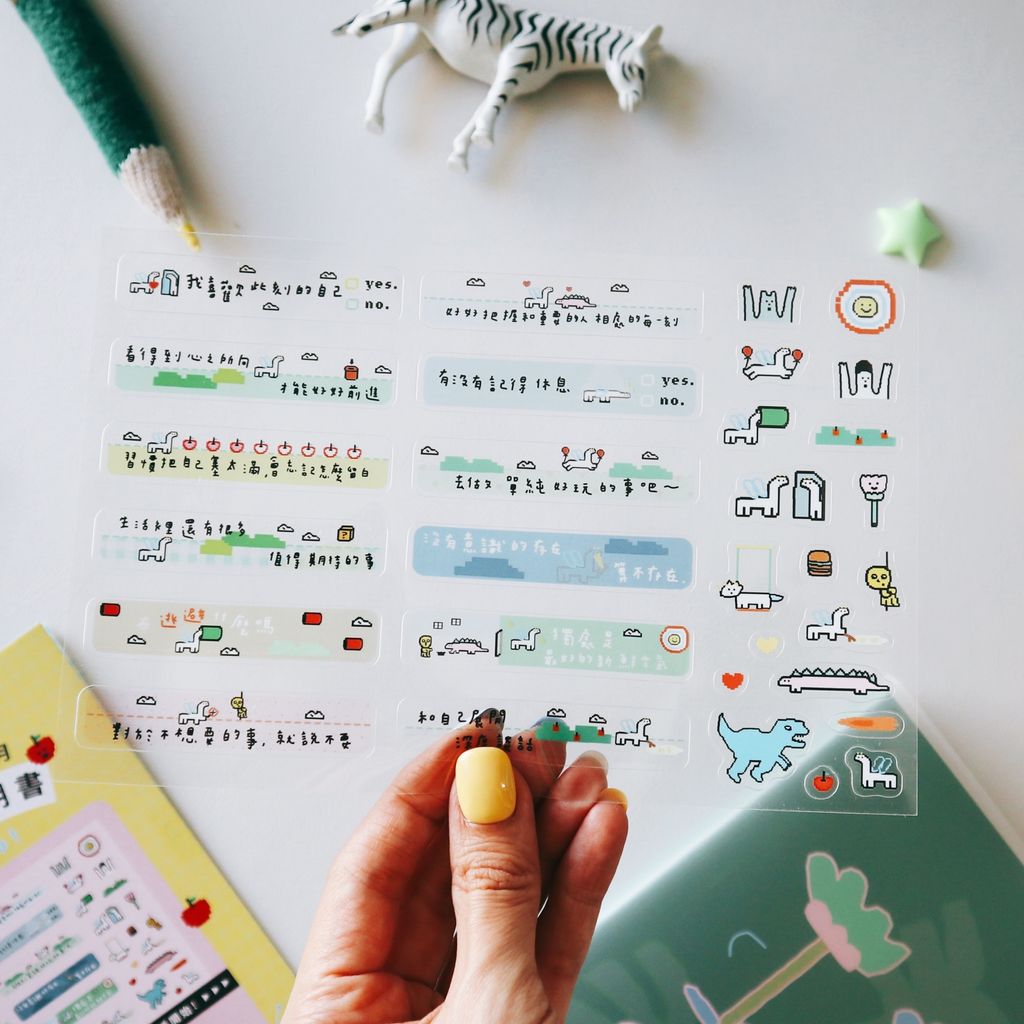 我喜歡此刻的自己
yes.
no.
看得到心之所向
才能好好前進
習慣把自己塞太滿,會忘記怎麼留白
生活裡還有很多
值得期待的事
在逃避什麼嗎
對於不想要的事,就說不要
好好把握和重要的人相處的每一刻
有沒有記得休息
yes.
no.
去做單純好玩的事吧~
沒有意識的存在
算不存在.
獨處是
最好的新鮮空氣
和自己展開
深度談話
?
月
書